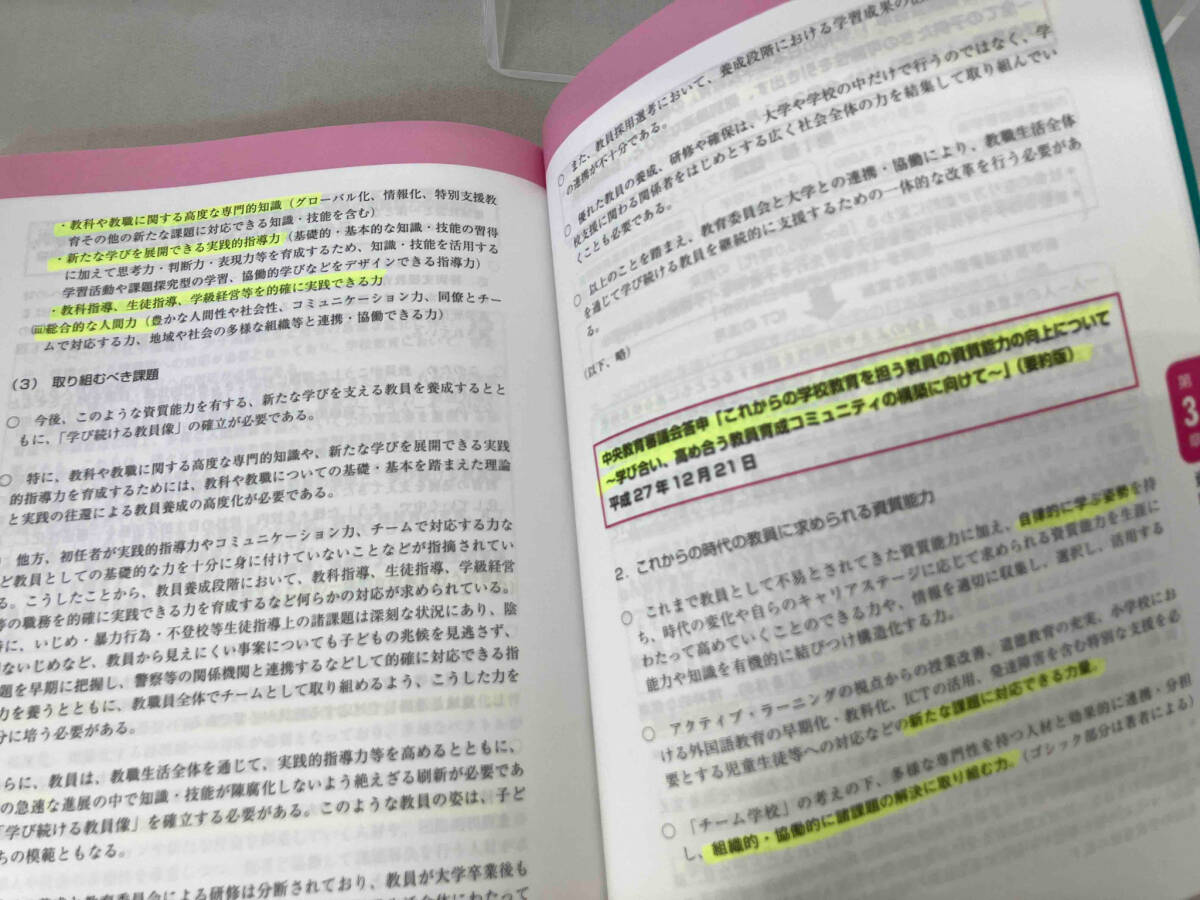 ・教科や教職に関する高度な専門的知識（グローバル化、情報化、特別支援教
育その他の新たな課題に対応できる知識・技能を含む）
・新たな学びを展開できる実践的指導力（基礎的・基本的な知識・技能の習得
に加えて思考力・判断力・表現力等を育成するため、知識・技能を活用する
学習活動や課題探究型の学習、協働的学びなどをデザインできる指導力）
・教科指導、生徒指導、学級経営等を的確に実践できる力
(ⅲ)総合的な人間力（豊かな人間性や社会性、コミュニケーション力、同僚とチー
ムで対応する力、地域や社会の多様な組織等と連携・協働できる力）
（3） 取り組むべき課題
○ 今後、このような資質能力を有する、新たな学びを支える教員を養成するとと
もに、「学び続ける教員像」の確立が必要である。
○ 特に、教科や教職に関する高度な専門的知識や、新たな学びを展開できる実践
的指導力を育成するためには、教科や教職についての基礎・基本を踏まえた理論
と実践の往還による教員養成の高度化が必要である。
他方、初任者が実践的指導力やコミュニケーション力、チームで対応する力な
ど教員としての基礎的な力を十分に身に付けていないことなどが指摘されてい
る。こうしたことから、教員養成段階において、教科指導、生徒指導、学級経営
等の職務を的確に実践できる力を育成するなど何らかの対応が求められている。
に、いじめ・暴力行為・不登校等生徒指導上の諸課題は深刻な状況にあり、陰
ないじめなど、教員から見えにくい事案についても子どもの兆候を見逃さず、
題を早期に把握し、警察等の関係機関と連携するなどして的確に対応できる指
力を養うとともに、教職員全体でチームとして取り組めるよう、こうした力を
分に培う必要がある。
らに、教員は、教職生活全体を通じて、実践的指導力等を高めるとともに、
の急速な進展の中で知識・技能が陳腐化しないよう絶えざる刷新が必要であ
「学び続ける教員像」を確立する必要がある。このような教員の姿は、子ど
ちの模範ともなる。
と教育委員会による研修は分断されており、教員が大学卒業後も
○ また、教員採用選考において、養成段階における学習成果の
の連携が不十分である。
○ 優れた教員の養成、研修や確保は、大学や学校の中だけで行うのではなく、学
校支援に関わる関係者をはじめとする広く社会全体の力を結集して取り組んでい
くことも必要である。
○ 以上のことを踏まえ、教育委員会と大学との連携・協働により、教職生活全体
を通じて学び続ける教員を継続的に支援するための一体的な改革を行う必要があ
る。
（以下、略）
中央教育審議会答申「これからの学校教育を担う教員の資質能力の向上について
～学び合い、高め合う教員育成コミュニティの構築に向けて～」（要約版）
平成27年12月21日
2．これからの時代の教員に求められる資質能力
○ これまで教員として不易とされてきた資質能力に加え、自律的に学ぶ姿勢を持
ち、時代の変化や自らのキャリアステージに応じて求められる資質能力を生涯に
わたって高めていくことのできる力や、情報を適切に収集し、選択し、活用する
能力や知識を有機的に結びつけ構造化する力。
○ アクティブ・ラーニングの視点からの授業改善、道徳教育の充実、小学校にお
ける外国語教育の早期化・教科化、ICTの活用、発達障害を含む特別な支援を必
要とする児童生徒等への対応などの新たな課題に対応できる力量。
○ 「チーム学校」の考えの下、多様な専門性を持つ人材と効果的に連携・分担
し、組織的・協働的に諸課題の解決に取り組む力。（ゴシック部分は著者による）
第
3